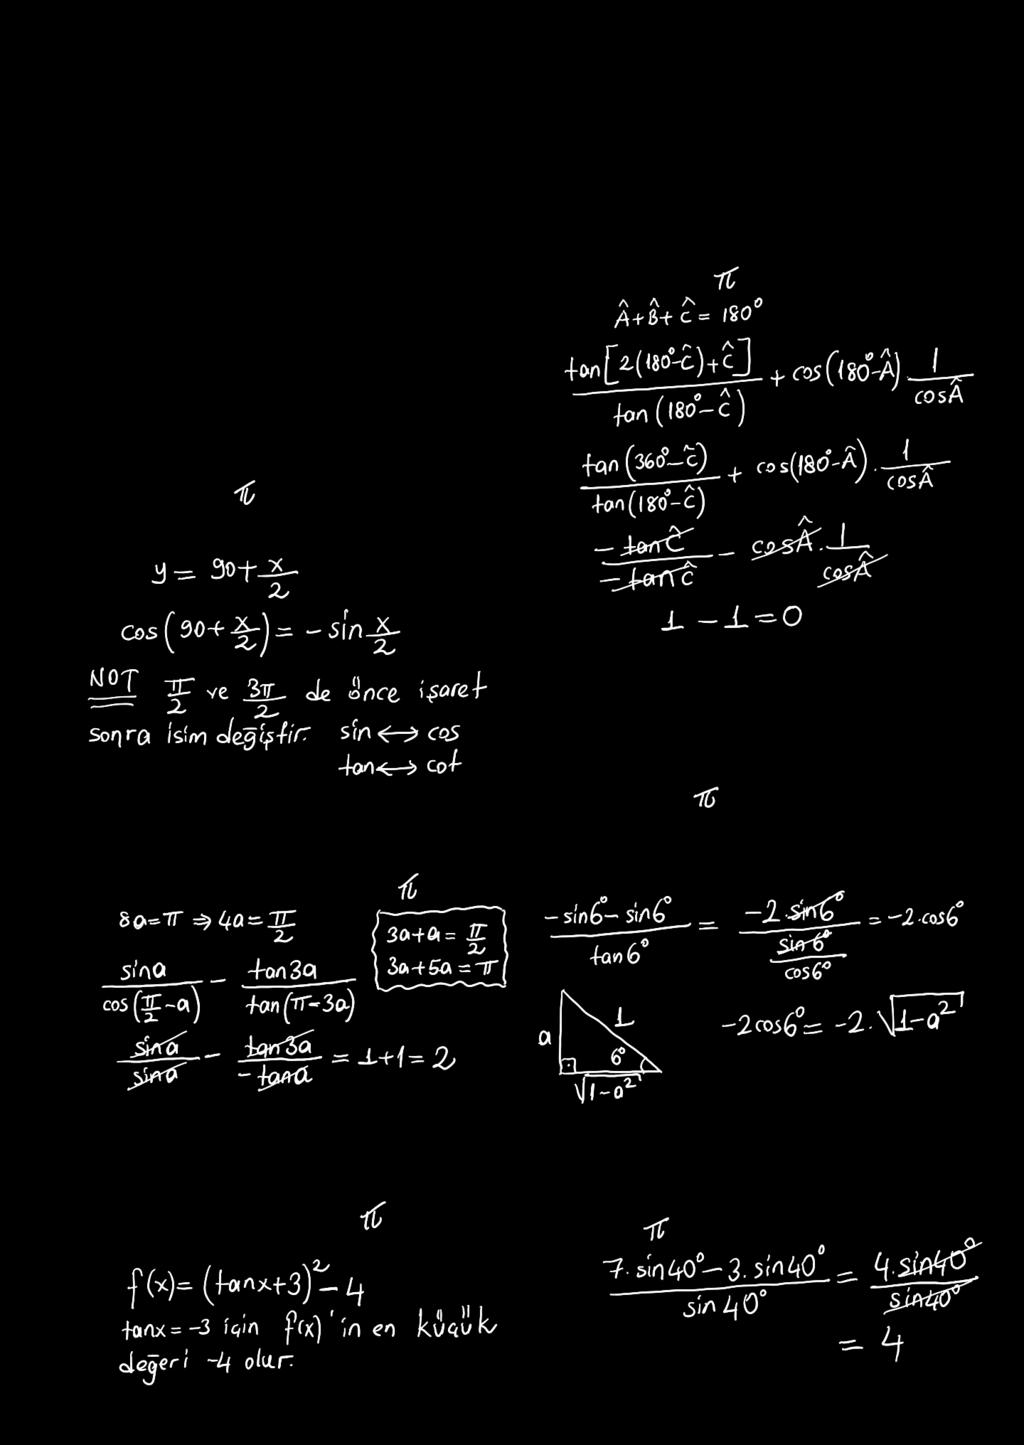 π
Â+B̂+Ĉ = 180°
tan[2(180°-Ĉ)+Ĉ] / tan(180°-Ĉ) + cos(180°-Â) . 1/cosÂ
tan(360°-Ĉ) / tan(180°-Ĉ) + cos(180°-Â) . 1/cosÂ
-tanĈ / -tanĈ - cosÂ . 1/cosÂ
1 - 1 = 0
π
y = 90+x/2
cos(90+x/2) = -sin x/2
NOT π/2 ve 3π/2 de önce işaret
sonra isim değiştir. sin ↔ cos
tan ↔ cot
π
8a=π ⇒ 4a=π/2
3a+a = π/2
3a+5a = π
sina / cos(π/2-a) - tan3a / tan(π-3a)
sina / sina - tan3a / -tana = 1+1 = 2
π
-sin6°-sin6° / tan6° = -2.sin6° / (sin6°/cos6°) = -2.cos6°
a 1 6° √1-a²
-2cos6° = -2.√1-a²
π
f(x) = (tanx+3)²-4
tanx = -3 için f(x)'in en küçük
değeri -4 olur.
π
7.sin40°-3.sin40° / sin40° = 4.sin40° / sin40°
= 4